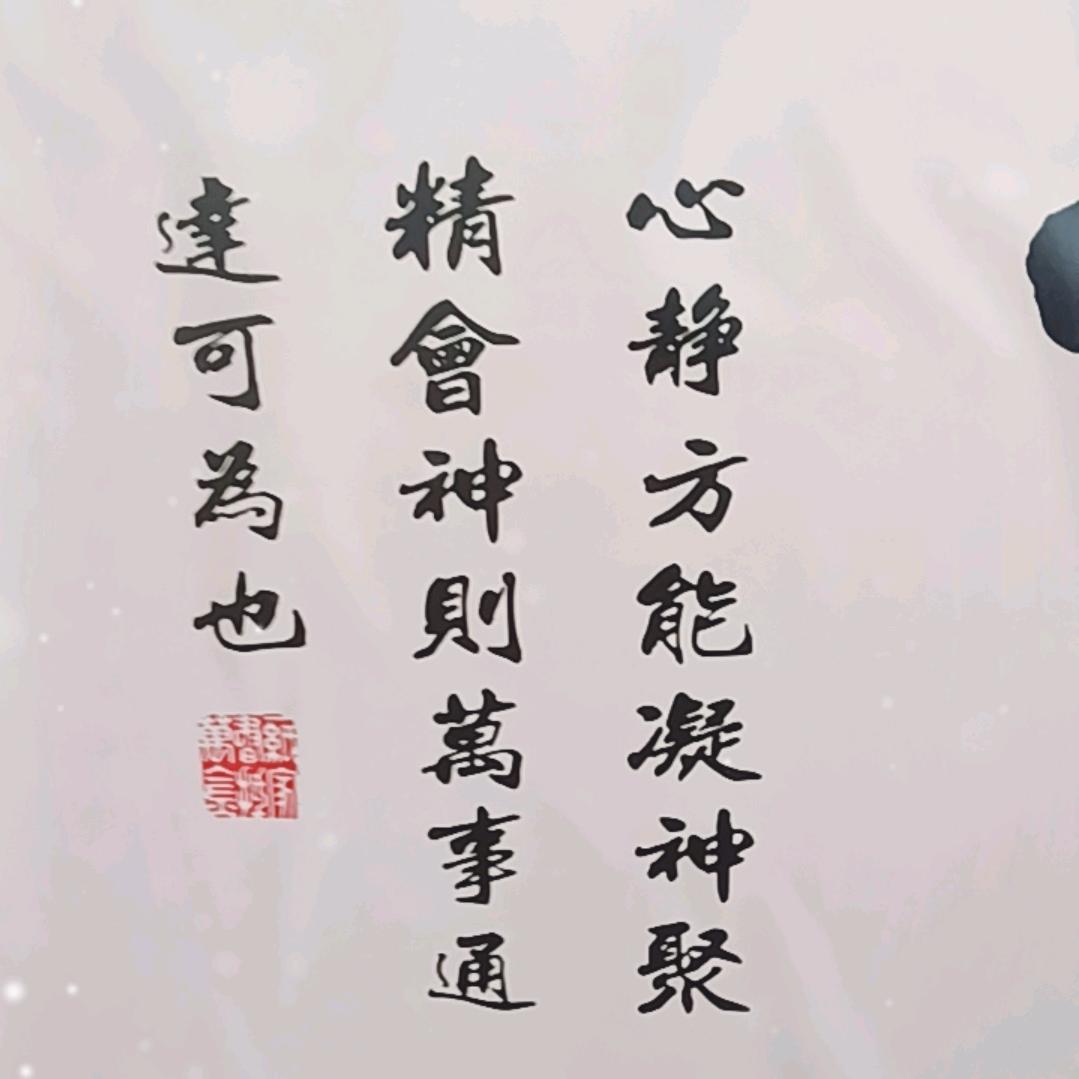 心静方能凝神聚
精會神則萬事通
達可為也